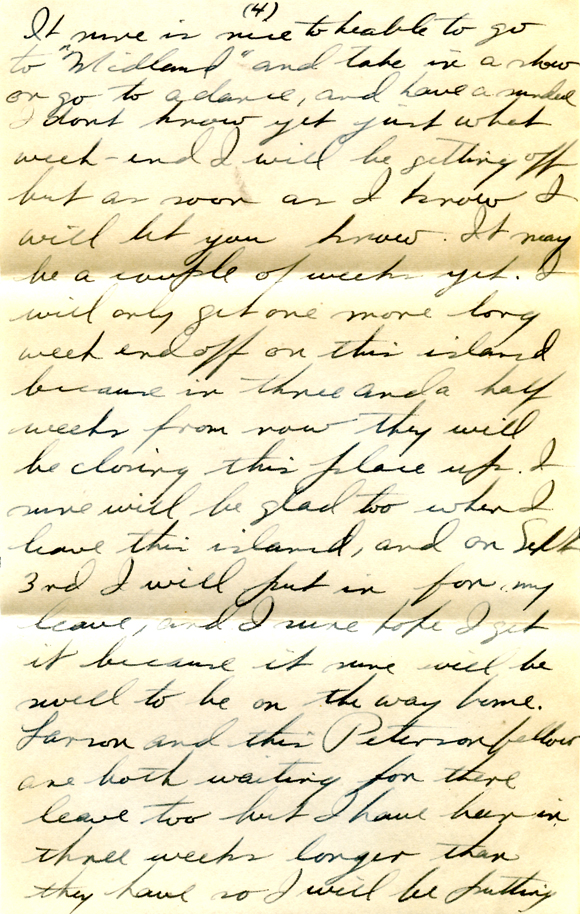 (4)
It sure is nice to be able to go
to "Midland" and take in a show
or go to a dance, and have a sundae
I dont know yet just what
week-end I will be getting off
but as soon as I know I
will let you know. It may
be a couple of weeks yet. I
will only get one more long
week end off on this island
because in three and a half
weeks from now they will
be closing this place up. I
sure will be glad too when I
leave this island, and on Sept
3rd I will put in for my
leave, and I sure hope I get
it because it sure will be
swell to be on the way home.
Larson and this Peterson fellow
are both waiting for there
leave too but I have been in
three weeks longer than
they have so I will be putting